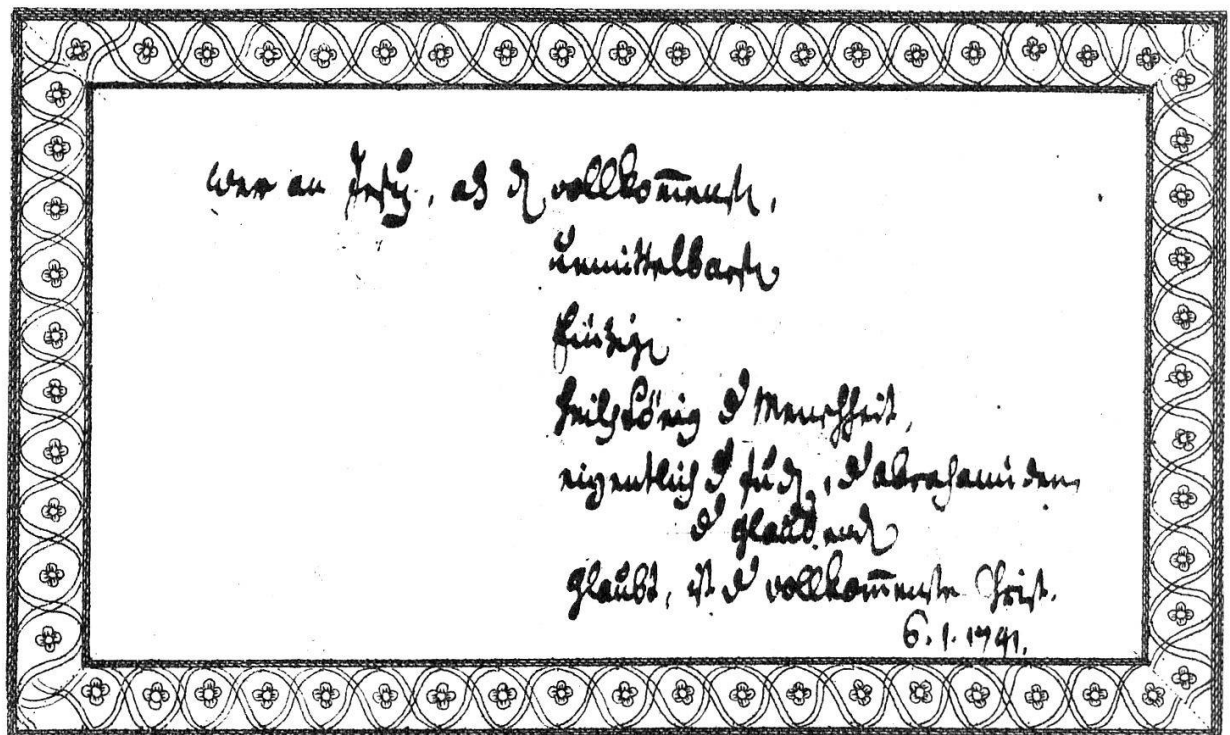 wer an Jesus, als den vollkom̄ensten,
unmittelbarsten
Einzigen
Heilskönig d Menschheit,
eigentlich d Juden, d abrahamiden,
d glaubenden
glaubt, ist d vollkom̄enste Christ.
6. 1. 1791.